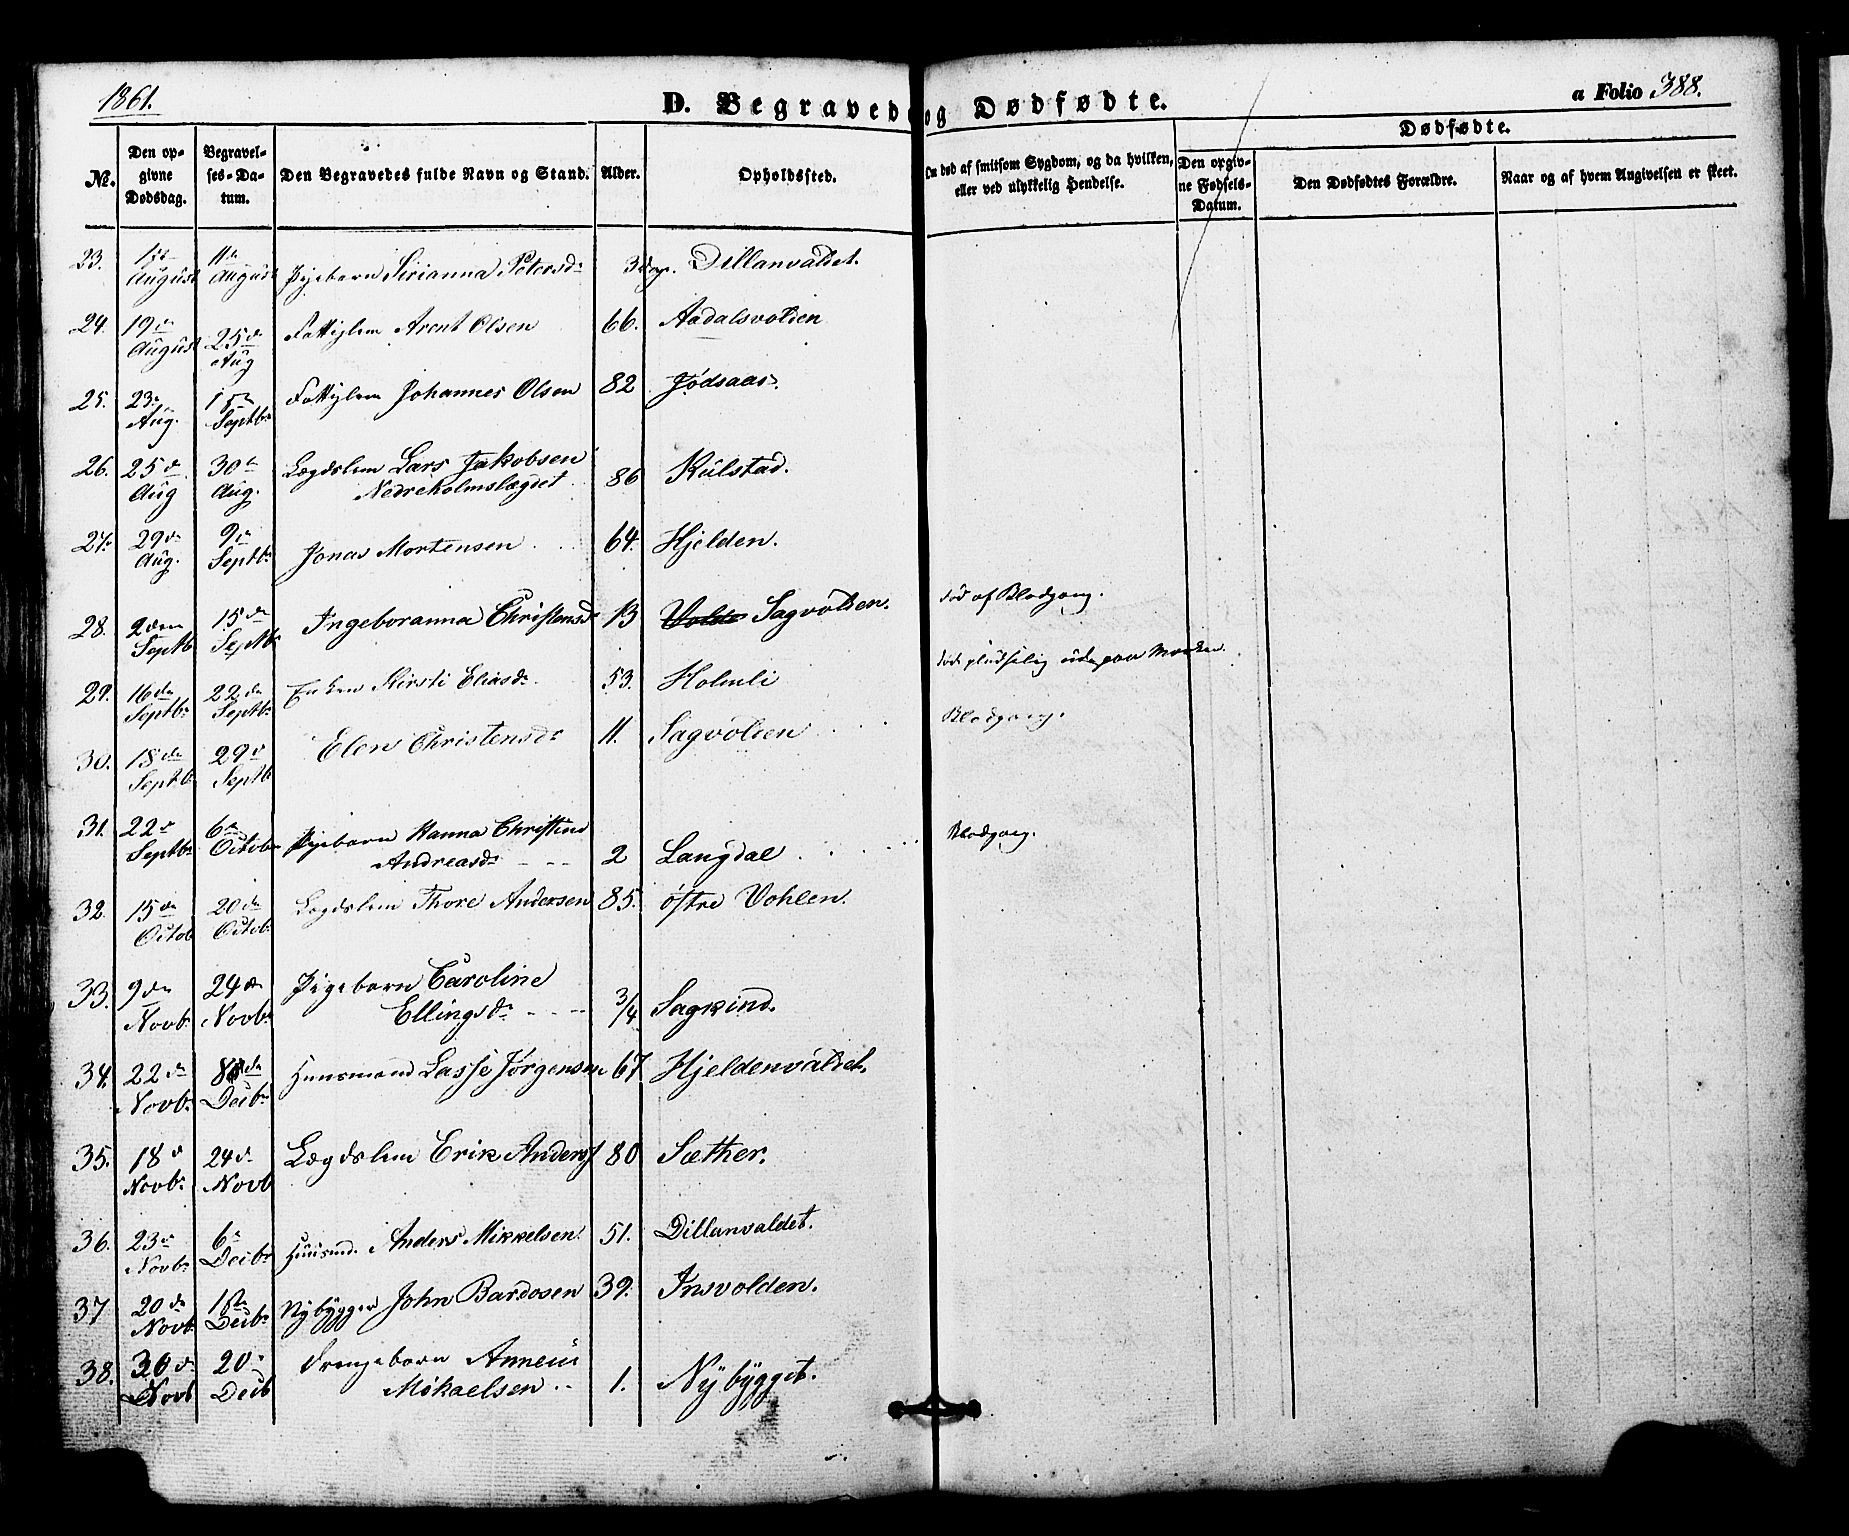 1861.
D. Begravede og Dødfødte.
a Folio 388.
No.
Den opgivne Dødsdag.
Begravelses-Datum.
Den Begravedes fulde Navn og Stand.
Alder.
Opholdssted.
Om død af smitsom Sygdom, og da hvilken, eller ved ulykkelig Hendelse.
Dødfødte.
Den opgivne Fødsels-Datum.
Den Dødfødtes Forældre.
Naar og af hvem Angivelsen er skeet.
23. August 11te August Pigebarn Sirianna Petersdr 3 dage. Dillanvaldet.
24. 19de August 25de Aug Fattiglem Arent Olsen 66. Aadalsvolden
25. 23de Aug. 1ste Septbr Fattiglem Johannes Olsen 82 Jødsaas.
26. 25de Aug 30te Aug. Lægdslem Lars Jakobsen
Nedreholmslægdet 86 Kulstad.
27. 29de Aug. 9de Septbr Jonas Mortensen 64. Hjelden.
28. 2den Septb 15de Septbr Ingeboranna Christensdr 13 Sagvolden. død af Blodgang.
29. 16de Septbr 22de Septbr Enken Kirsti Eliasdr 53. Holmli død pludselig ude paa Marken.
30. 18de Septbr 29de Septb Elen Christensdr 11. Sagvolden Blodgang.
31. 22de Septbr 6te Octobr Pigebarn Hanna Christine
Andreasdr 2 Langdal Blodgang.
32. 15de Octob 20de Octobr Lægdslem Thore Andersen 85. østre Vohlen.
33. 9de Novbr 24de Novbr Pigebarn Caroline
Ellingsdr 3/4 Sagkind.
34. 22de Novbr 8de Decbr Huusmand Lasse Jørgensen 67 Hjeldenvaldet.
35. 18de Novbr 24de Novb Lægdslem Erik Anders 80 Sæther.
36. 23de Novbr 6te Decbr Huusmd. Anders Mikkelsen 51. Dillanvaldet.
37 20de Novb 1ste Decbr Nybygger John Bardosen 39. Insvolden.
38. 30de Novb 20de Decb Drengebarn Anneus
Mikaelsen 1. Nybygget.